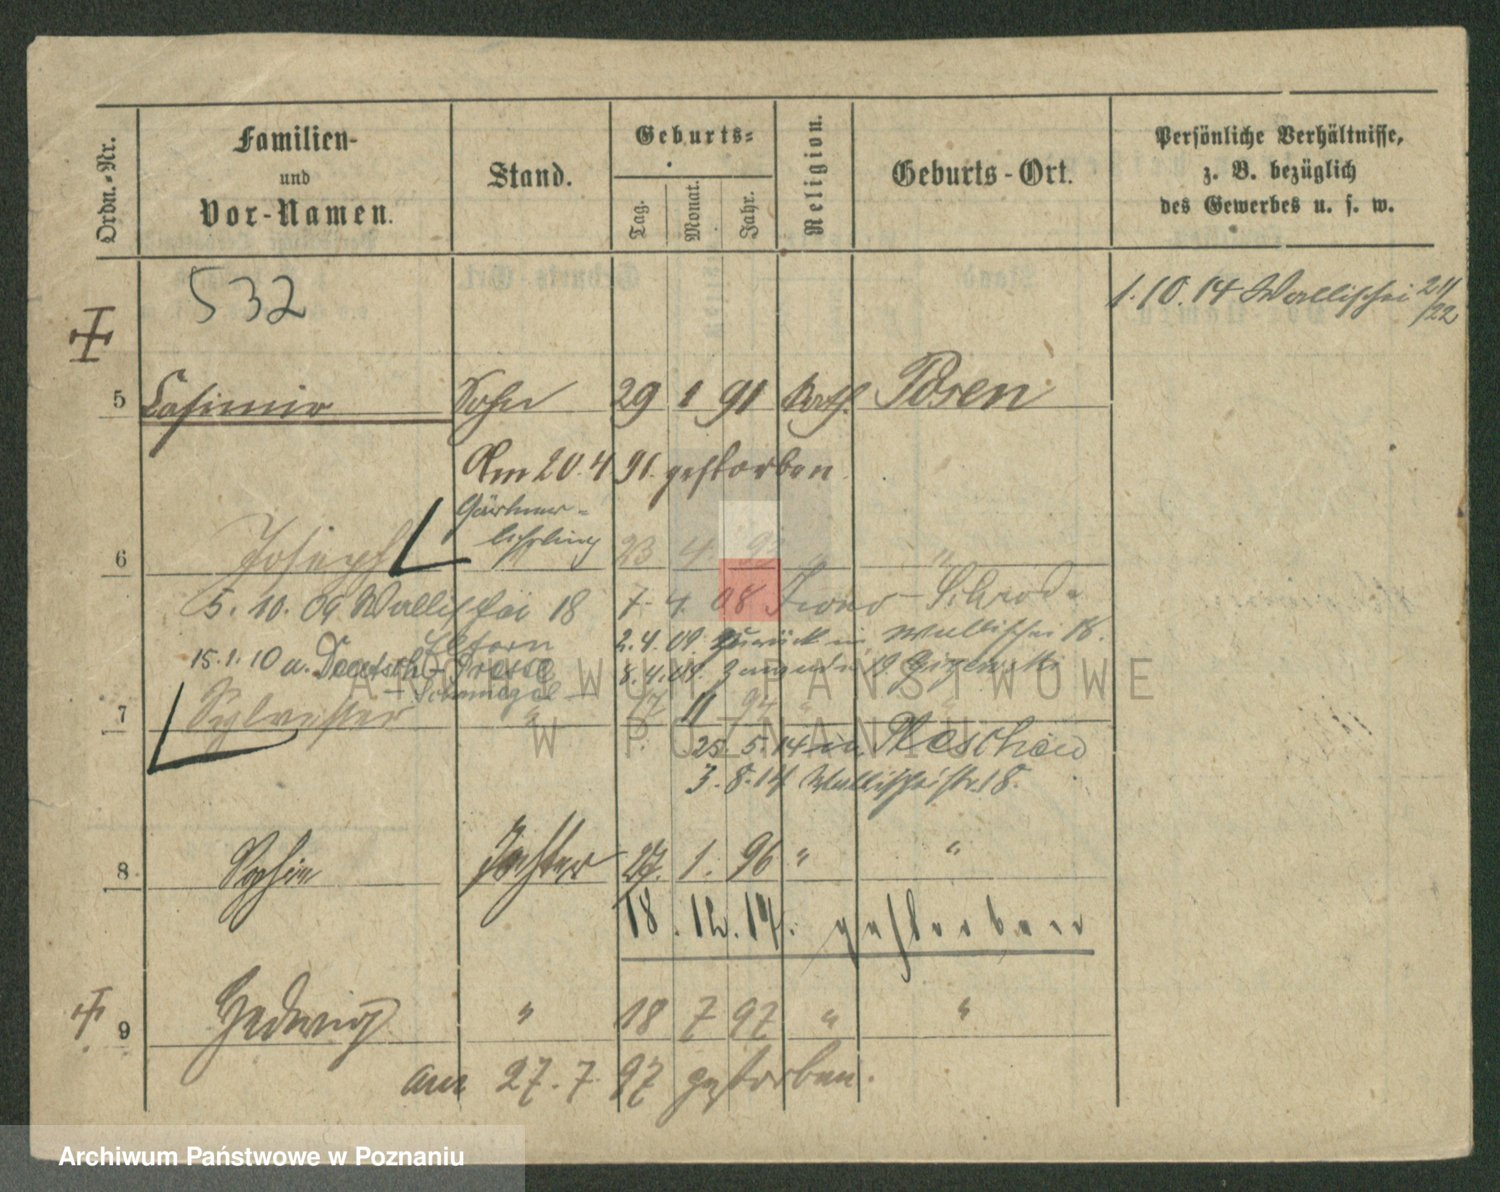 Ordn.-Nr.
Familien-
und
Vor-Namen.
Stand.
Geburts-
Tag.
Monat.
Jahr.
Religion.
Geburts-Ort.
Persönliche Verhältnisse,
z. B. bezüglich
des Gewerbes u. s. w.
532
1.10.14 Wallischei 21/22
5 Casimir Sohn 29 1 91 Kath. Posen
Am 20.4 91. gestorben.
Gärtner-
lehrling
6 Joseph 23 4. 93 "
5. 10. 09 Wallischei 18 7. 4. 08
2.4.09. zurück in Wallischei 18.
Eltern
15.1.10 n. Deutsch-Presse
8.4.09.
Schmiegel
7 Sylvester " 27 11 94 "
25. 5. 14 in Raschkow
3. 8. 14 Wallischeistr. 18.
8 Sophie Tochter 27. 1. 96 " "
18. 12. 14. gestorben
9 Hedwig " 18 7 97 " "
am 27. 7. 97 gestorben.
ARCHIWUM PAŃSTWOWE
W POZNANIU
Archiwum Państwowe w Poznaniu